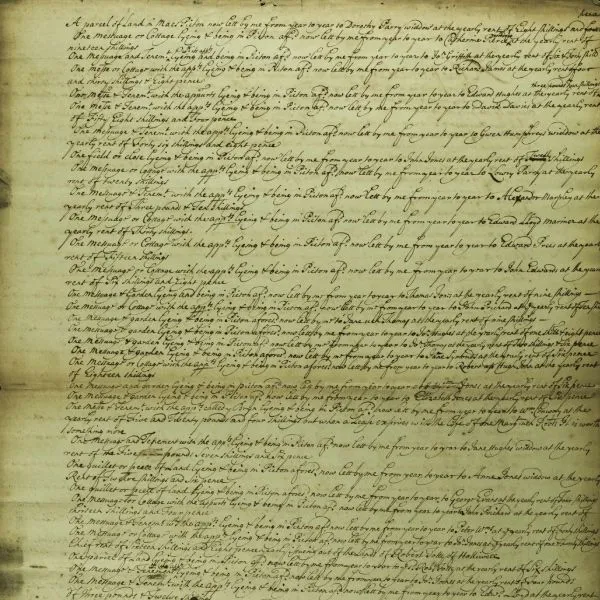 A parcel of Land in Maes Picton now lett by me from year to year to Dorothy Parry widow at the yearly rent of Eight shillings
One Messuage or Cottage Lyeing & being in Picton afs. now lett by me from year to year to Catherine at the yearly rent of
nineteen shillings
One Messuage and Tenemt. Lyeing and being in Picton afs. now lett by me from year to year to Jno. Griffith at the yearly rent of
One Messe or Cottage with the app. Lyeing & being in Picton afs. now lett by me from year to year to Richard Davis at the yearly rent of four
and thirty shillings & Eight pence
three pounds four shillings
One Messe & Tenemt. with the appurts Lyeing & being in Picton afs. now lett by me from year to year to Edward Hughes at the yearly rent of
One Messe & Tenemt. with the app. Lyeing & being in Picton afs. now lett by me from year to year to David Davies at the yearly rent
of Fifty Eight shillings and Four pence
One Messuage & Tenemt. with the app. Lyeing & being in Picton afs. now lett by me from year to year to Gwen Humphreys widow at the
yearly rent of Forty six shillings and Eight pence
One field or close Lyeing & being in Picton afs. now lett by me from year to year to John Jones at the yearly rent of Twelve shillings
One Messuage or Cottage with the app. Lyeing & being in Picton afs. now lett by me from year to year to Lowry Parry at the yearly
rent of twenty shillings
One Messuage & Tenemt. with the app. Lyeing & being in Picton afs. now lett by me from year to year to Alexander Murphey at the
yearly rent of Three pounds & Ten shillings
One Messuage or Cottage with the app. Lyeing & being in Picton afs. now lett by me from year to year to Edward Lloyd Mariner at the
yearly rent of Thirty shillings
One Messuage or Cottage with the app. Lyeing & being in Picton afs. now lett by me from year to year to Edward Price at the yearly
rent of Fifteen shillings
One Messuage or Cottage with the app. Lyeing & being in Picton afs. now lett by me from year to year to John Edwards at the yearly
rent of Six shillings and Eight pence
One Messuage & Garden Lyeing and being in Picton afs. now lett by me from year to year to Thomas Jones at the yearly rent of nine shillings
One Messuage or Cottage with the app. Lyeing & being in Picton afs. now lett by me from year to year to John Prichard at the yearly rent of
One Messuage & garden Lyeing & being in Picton afores. now lett by me to Jane Thomas at the yearly rent of nine shillings
One Messuage & garden Lyeing & being in Picton afores. now lett by me from year to year to Jno. Hughes at the yearly rent of
One Messuage & garden Lyeing & being in Picton afs. now lett by me from year to year to Jno. Thomas at the yearly rent of Two shillings & Six pence
One Messuage & garden Lyeing & being in Picton afores. now lett by me from year to year to Jane at the yearly rent of Six pence
One Messuage or Cottage with the app. Lyeing & being in Picton afores. now lett by me from year to year to Robert ap Hugh John at the yearly rent
of Eighteen shillings
One Messuage and garden Lyeing & being in picton afs. now lett by me from year to year to Jones at the yearly rent of Six pence
One Messuage & garden Lyeing & being in Picton afs. now lett by me from year to year to Elizabeth Jones at the yearly rent of Six pence
One Messe & Tenemt. with the app. called Groyn Lyeing & being in Picton afs. now lett by me from year to year to Wm. at the
yearly rent of Five and Twenty pounds and four shillings out when a Lease expires with the Life of one Margaret is worth
something more
One Messuage and Tenement with the app. Lyeing & being in Picton afs. now lett by me from year to year to Jane Hughes widow at the yearly
rent of Five pounds Seven shillings and Six pence
One Quillet or peece of Land Lyeing & being in Picton afores. now lett by me from year to year to Anne Jones widow at the yearly
Rent of Twelve shillings and Six pence
One Quillet or peece of Land Lyeing & being in Picton afores. now lett by me from year to year to George at the yearly rent of Four shillings
One Messuage or Cottage with the appurts Lyeing & being in Picton afs. now lett by me from year to year to John Prichard at the yearly rent of
thirteen shillings and Four pence
One Messuage & Tenemt. with the app. Lyeing & being in Picton afs. now lett by me from year to year to Peter at yearly rent of Forty shillings
One Messuage or Cottage with the app. Lyeing & being in Picton afs. now lett by me from year to year to Jno. Jones at yearly rent of
Chief rent of Sixteen shillings and Eight pence yearly Issueing out of the Lands of Robert of Holliwell
One parcel of Land Lyeing & being in Picton afs. now lett by me from year to year to at the yearly rent of Six shillings
One Messuage & Tenement Lyeing & being in Picton afs. now lett by me from year to year to Jno. at the yearly rent of Four pounds
One Messuage & Tenemt. with the app. Lyeing & being in Picton afs. now lett by me from year to year to Lloyd at the yearly rent
of Three pounds & Twelve